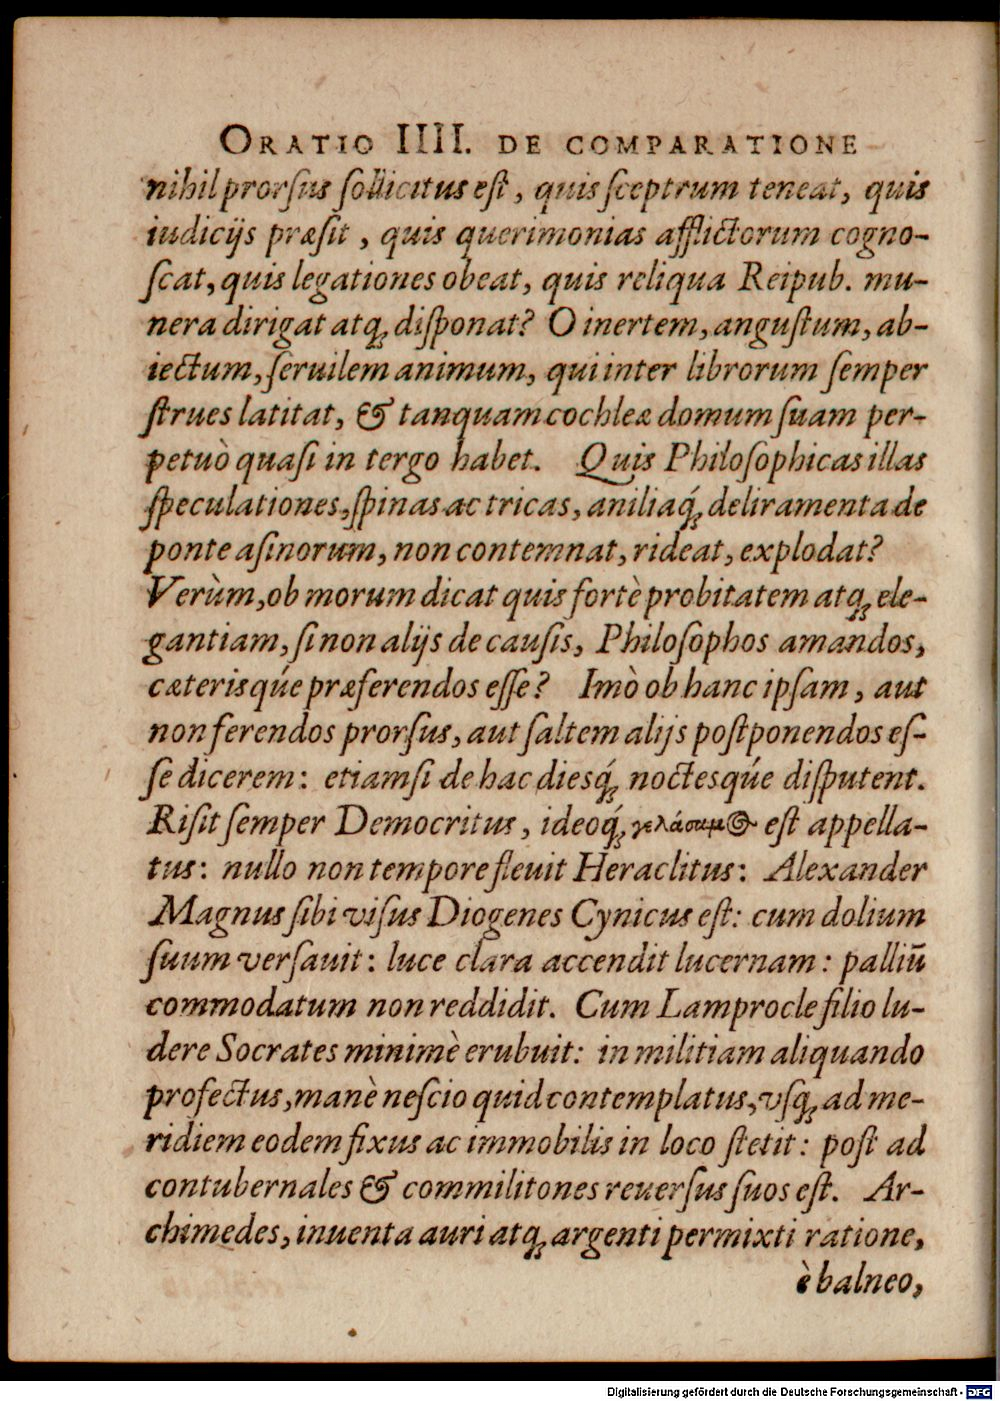 ORATIO IIII. DE COMPARATIONE
nihil prorſus ſollicitus eſt, quis ſceptrum teneat, quis
iudicijs præſit, quis querimonias afflictorum cogno-
ſcat, quis legationes obeat, quis reliqua Reipub. mu-
nera dirigat atq; diſponat? O inertem, anguſtum, ab-
iectum, ſeruilem animum, qui inter librorum ſemper
ſtrues latitat, & tanquam cochleæ domum ſuam per-
petuò quaſi in tergo habet. Quis Philoſophicas illas
ſpeculationes, ſpinas ac tricas, aniliaq́; deliramenta de
ponte aſinorum, non contemnat, rideat, explodat?
Verùm, ob morum dicat quis fortè probitatem atq; ele-
gantiam, ſi non alijs de cauſis, Philoſophos amandos,
cæterisq́ue præferendos eſſe? Imò ob hanc ipſam, aut
non ferendos prorſus, aut ſaltem alijs poſtponendos eſ-
ſe dicerem: etiamſi de hac diesq́; noctesq́ue diſputent.
Riſit ſemper Democritus, ideoq́; γελάσιμος eſt appella-
tus: nullo non tempore fleuit Heraclitus: Alexander
Magnus ſibi viſus Diogenes Cynicus eſt: cum dolium
ſuum verſauit: luce clara accendit lucernam: palliū
commodatum non reddidit. Cum Lamprocle filio lu-
dere Socrates minimè erubuit: in militiam aliquando
profectus, manè neſcio quid contemplatus, vſq; ad me-
ridiem eodem fixus ac immobilis in loco ſtetit: poſt ad
contubernales & commilitones reuerſus ſuos eſt. Ar-
chimedes, inuenta auri atq; argenti permixti ratione,
è balneo,
Digitalisierung gefördert durch die Deutsche Forschungsgemeinschaft - DFG